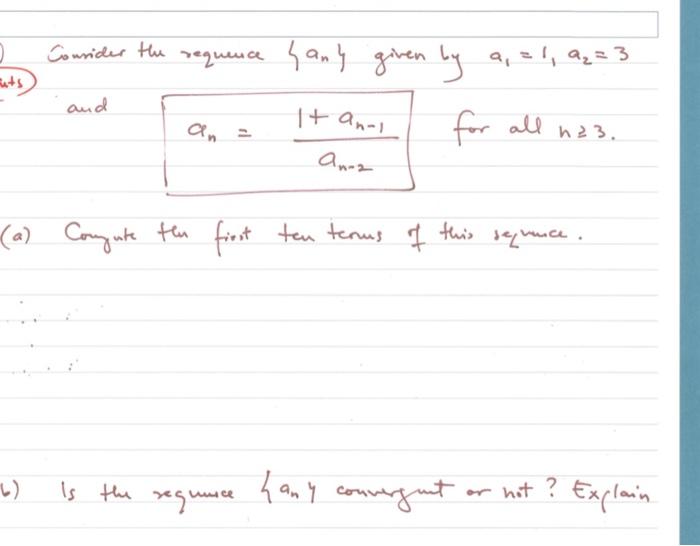 Consider the sequence {an} given by a1 = 1, a2 = 3
and an = 1 + an-1 / an-2 for all n ≥ 3.
(a) Compute the first ten terms of this sequence.
b) Is the sequence {an} convergent or not? Explain